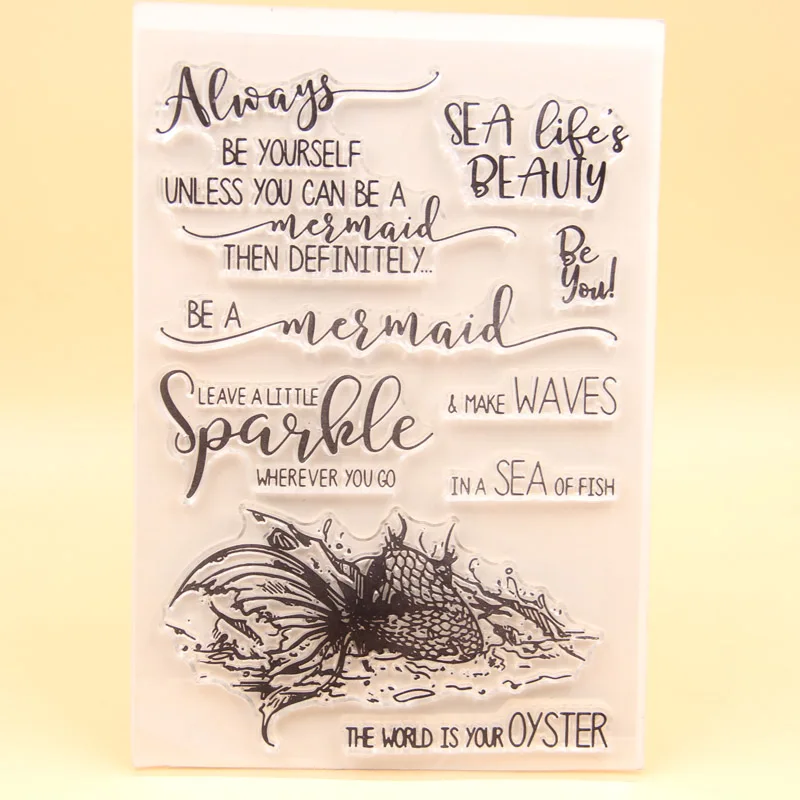 Always
BE YOURSELF
UNLESS YOU CAN BE A
mermaid
THEN DEFINITELY...
SEA life's
BEAUTY
Be
You!
BE A mermaid
LEAVE A LITTLE
Sparkle
WHEREVER YOU GO
& MAKE WAVES
IN A SEA OF FISH
THE WORLD IS YOUR OYSTER